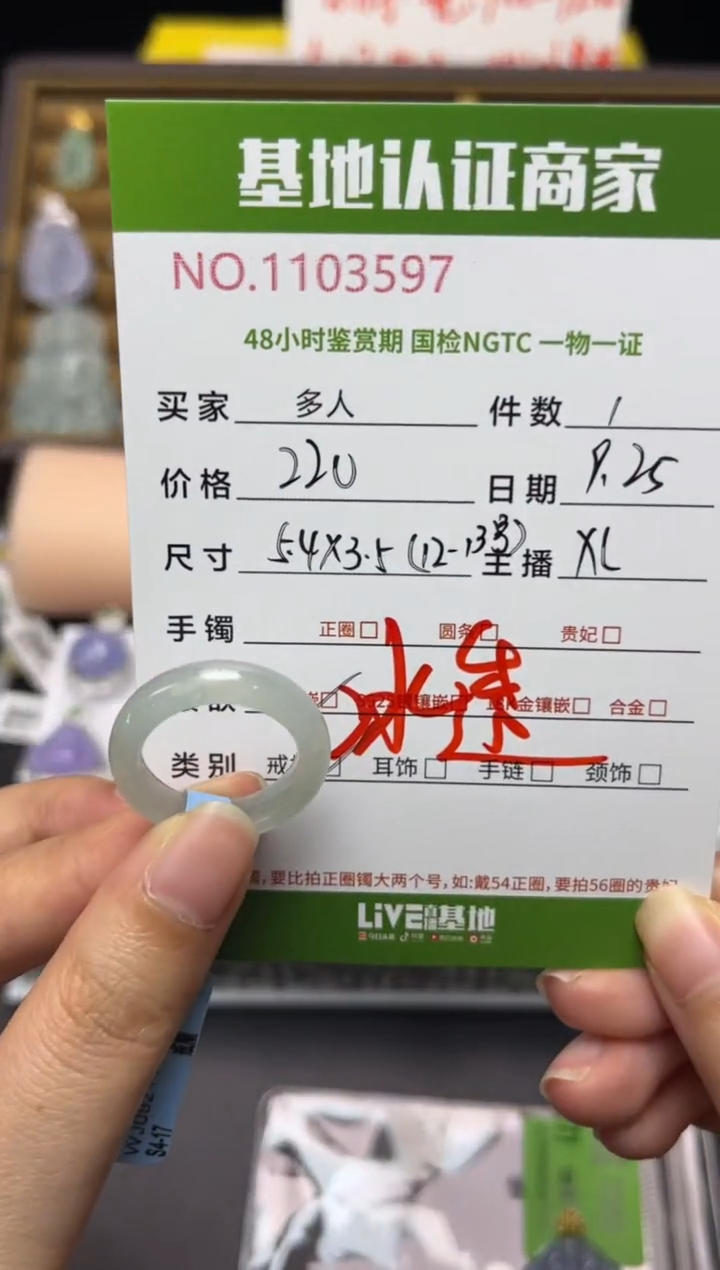 基地认证商家
NO.1103597
48小时鉴赏期 国检NGTC 一物一证
买家 多人 件数 1
价格 220 日期 9.25
尺寸 5.4X3.5 (12-13号) 主播 XL
手镯 正圈 圆条 贵妃
镶嵌 金镶嵌 合金
冰透
类别 戒 耳饰 手链 颈饰
要比拍正圈镯大两个号,如:戴54正圈,要拍56圈的贵妃
LIVE直播基地
S4-17